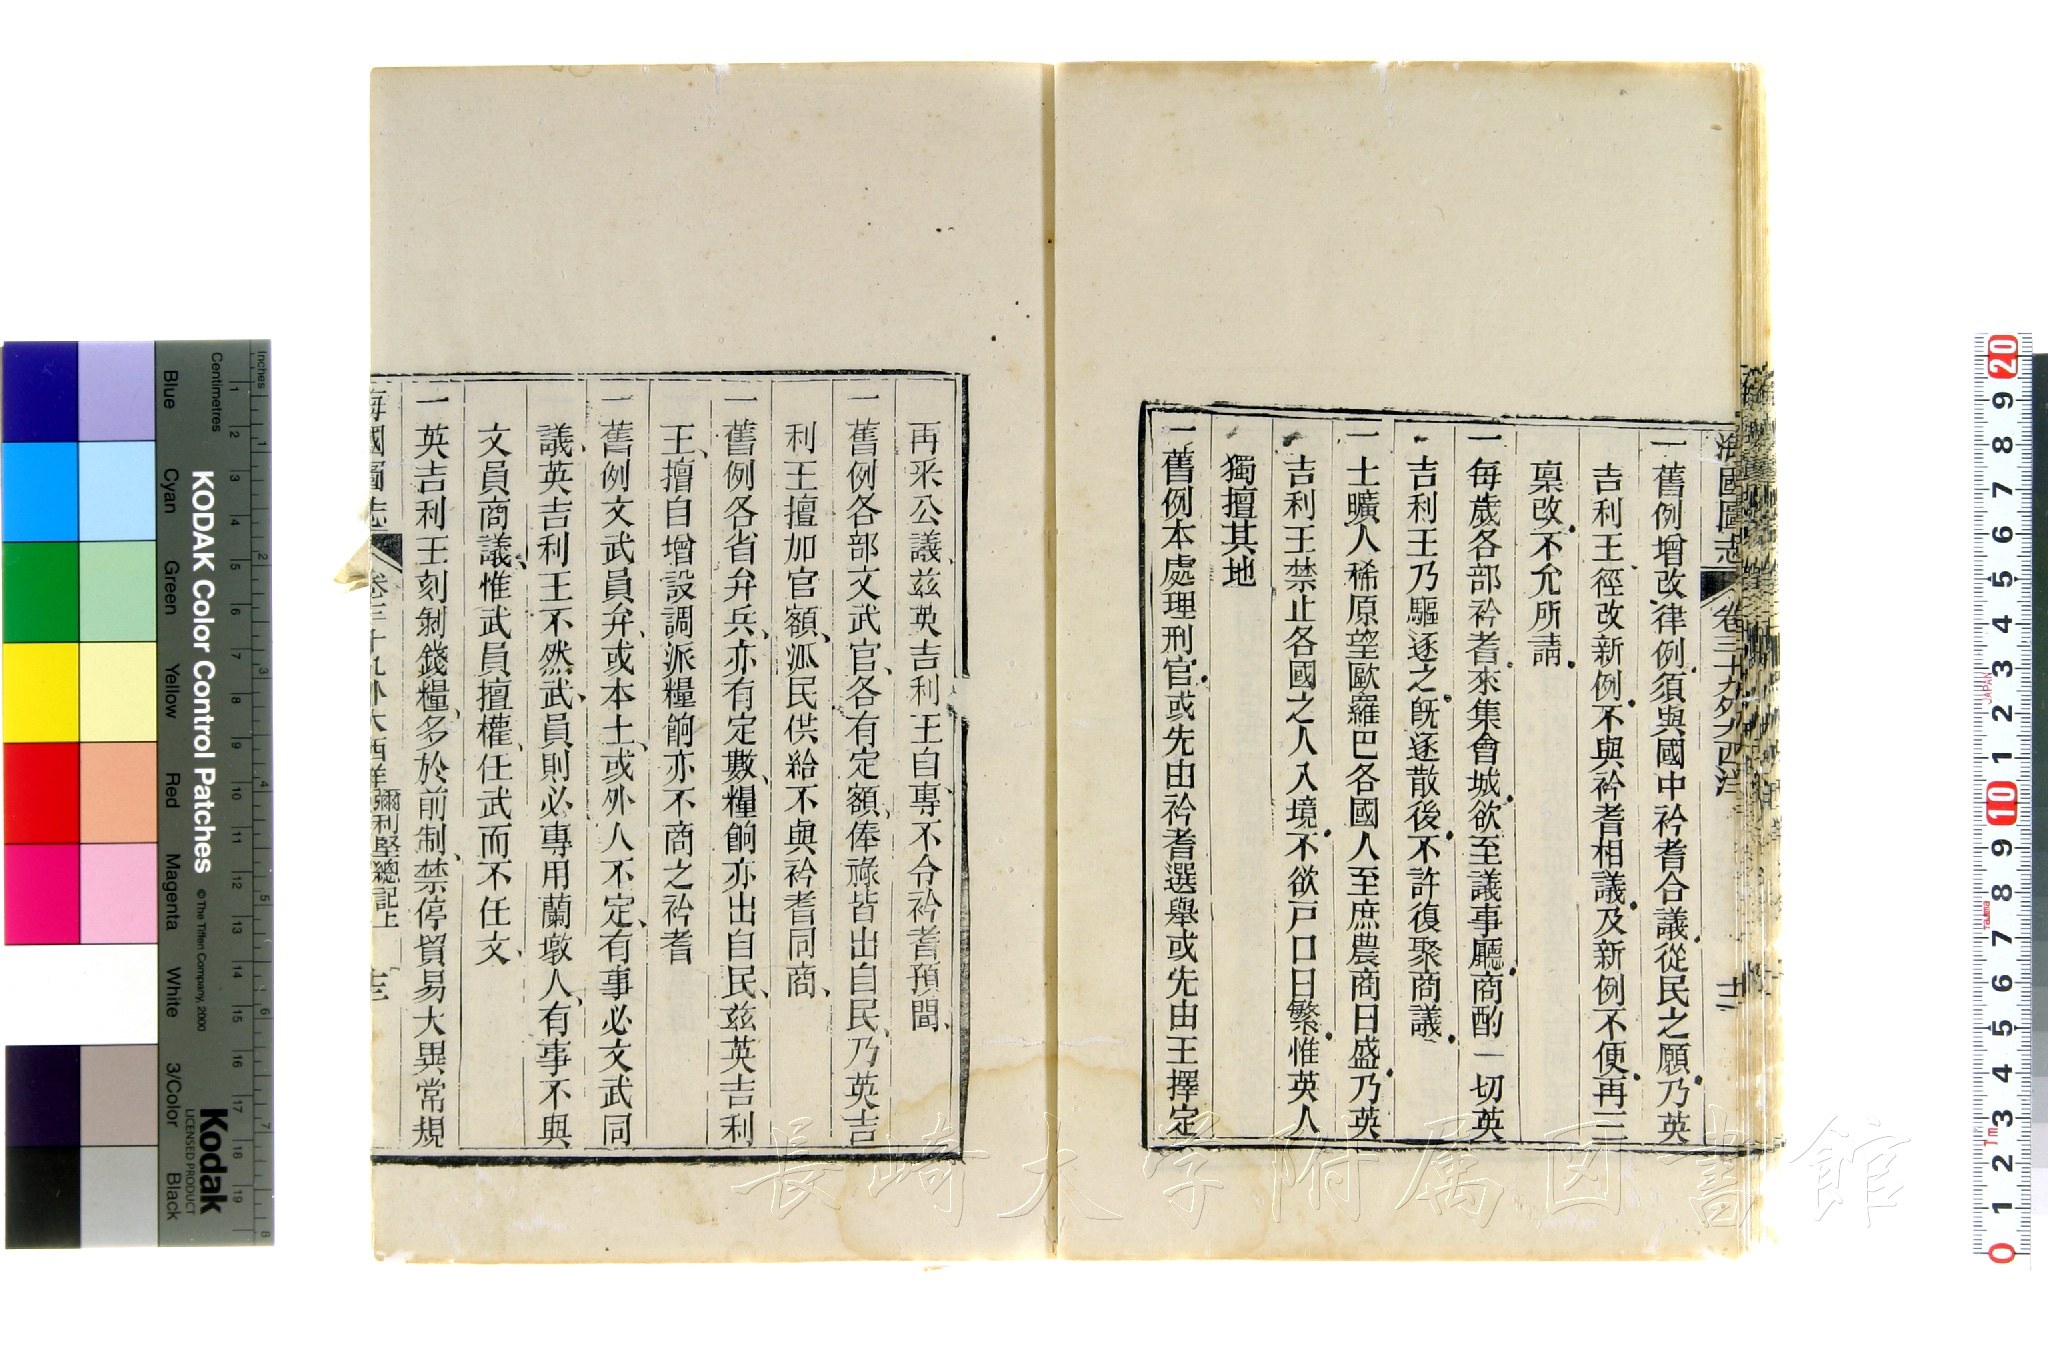 海國圖志 卷三十九外大西洋 十二
一舊例增改律例須與國中衿耆合議從民之願乃英
吉利王徑改新例不與衿耆相議及新例不便再三
稟改不允所請
一每歲各部衿耆來集會城欲至議事廳商酌一切英
吉利王乃驅逐之旣逐散後不許復聚商議
一土曠人稀原望歐羅巴各國人至庶農商日盛乃英
吉利王禁止各國之人入境不欲戸口日繁惟英人
獨擅其地
一舊例本處理刑官或先由衿耆選舉或先由王擇定
再采公議茲英吉利王自專不令衿耆預聞
一舊例各部文武官各有定額俸祿皆出自民乃英吉
利王擅加官額派民供給不與衿耆同商
一舊例各省弁兵亦有定數糧餉亦出自民茲英吉利
王擅自增設調派糧餉亦不商之衿耆
一舊例文武員弁或本土或外人不定有事必文武同
議英吉利王不然武員則必專用蘭墩人有事不與
文員商議惟武員擅權任武而不任文
一英吉利王刻剝錢糧多於前制禁停貿易大異常規
海國圖志 卷三十九外大西洋 彌利堅總記上 十三
長崎大学附属図書館
KODAK Color Control Patches
© The Tiffen Company, 2000
Kodak
LICENSED PRODUCT
Inches
Centimetres
Blue
Cyan
Green
Yellow
Red
Magenta
White
3/Color
Black
1 2 3 4 5 6 7 8 9 10 11 12 13 14 15 16 17 18 19
1 2 3 4 5 6 7 8
0 1 2 3 4 5 6 7 8 9 10 1 2 3 4 5 6 7 8 9 20
JAPAN